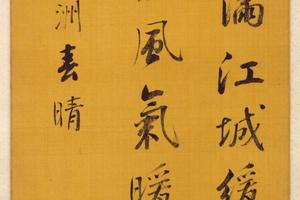 滿江城緩
風氣暖
洲春晴